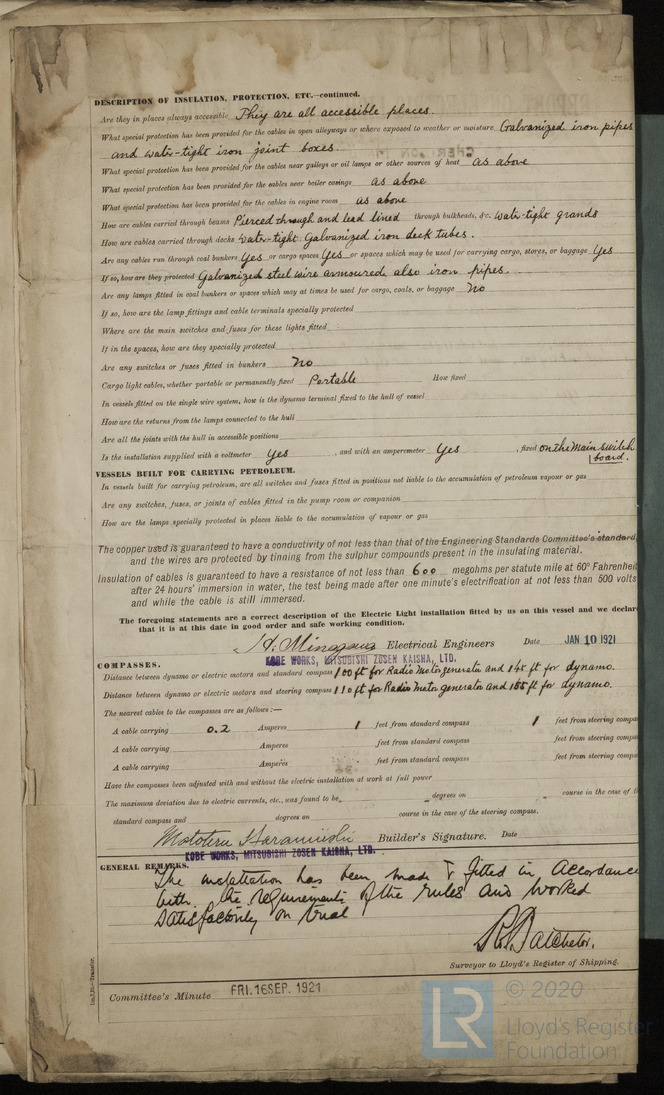 DESCRIPTION OF INSULATION, PROTECTION, ETC.—continued.
Are they in places always accessible They are all accessible places.
What special protection has been provided for the cables in open alleyways or where exposed to weather or moisture Galvanized iron pipes
and water-tight iron joint boxes.
What special protection has been provided for the cables near galleys or oil lamps or other sources of heat as above
What special protection has been provided for the cables near boiler casings as above
What special protection has been provided for the cables in engine room as above
How are cables carried through beams Pierced through and lead lined through bulkheads, &c. water-tight grands
How are cables carried through decks water-tight Galvanized iron deck tubes.
Are any cables run through coal bunkers Yes or cargo spaces Yes or spaces which may be used for carrying cargo, stores, or baggage Yes
If so, how are they protected Galvanized steel wire armoured also iron pipes.
Are any lamps fitted in coal bunkers or spaces which may at times be used for cargo, coals, or baggage No
If so, how are the lamp fittings and cable terminals specially protected
Where are the main switches and fuses for these lights fitted
If in the spaces, how are they specially protected
Are any switches or fuses fitted in bunkers No
Cargo light cables, whether portable or permanently fixed Portable How fixed
In vessels fitted on the single wire system, how is the dynamo terminal fixed to the hull of vessel
How are the returns from the lamps connected to the hull
Are all the joints with the hull in accessible positions
Is the installation supplied with a voltmeter Yes , and with an amperemeter Yes , fixed on the Main switch
board.
VESSELS BUILT FOR CARRYING PETROLEUM.
In vessels built for carrying petroleum, are all switches and fuses fitted in positions not liable to the accumulation of petroleum vapour or gas
Are any switches, fuses, or joints of cables fitted in the pump room or companion
How are the lamps specially protected in places liable to the accumulation of vapour or gas
The copper used is guaranteed to have a conductivity of not less than that of the Engineering Standards Committee's standard,
and the wires are protected by tinning from the sulphur compounds present in the insulating material.
Insulation of cables is guaranteed to have a resistance of not less than 600 megohms per statute mile at 60° Fahrenheit
after 24 hours' immersion in water, the test being made after one minute's electrification at not less than 500 volts
and while the cable is still immersed.
The foregoing statements are a correct description of the Electric Light installation fitted by us on this vessel and we declare
that it is at this date in good order and safe working condition.
Electrical Engineers Date JAN 10 1921
KOBE WORKS, MITSUBISHI ZOSEN KAISHA, LTD.
COMPASSES.
Distance between dynamo or electric motors and standard compass 100 ft for Radio Motor generator and 145 ft for dynamo.
Distance between dynamo or electric motors and steering compass 110 ft for Radio Motor generator and 155 ft for dynamo.
The nearest cables to the compasses are as follows:—
A cable carrying 0.2 Amperes 1 feet from standard compass 1 feet from steering compa
A cable carrying Amperes feet from standard compass feet from steering compa
A cable carrying Amperes feet from standard compass feet from steering compa
Have the compasses been adjusted with and without the electric installation at work at full power
The maximum deviation due to electric currents, etc., was found to be degrees on course in the case of th
standard compass and degrees on course in the case of the steering compass.
Builder's Signature. Date
KOBE WORKS, MITSUBISHI ZOSEN KAISHA, LTD.
GENERAL REMARKS.
The installation has been made & fitted in accordance
with the requirements of the rules and worked
satisfactorily on trial
R. Batchelor.
Surveyor to Lloyd's Register of Shipping.
Committee's Minute FRI. 16 SEP. 1921
© 2020
LR Lloyd's Register
Foundation